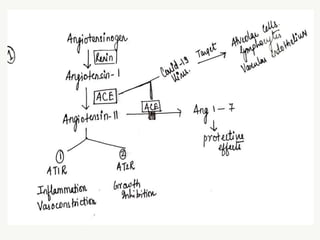 1
Angiotensinogen
Renin
Angiotensin-I
ACE
Angiotensin-II
Covid-19
Virus.
Target
Alveolar cells.
Lymphocytes
Vascular Endothelium
ACE
Ang 1-7
protective
effects
1
AT1R
Inflammation
Vasoconstriction
2
AT2R
Growth
Inhibition